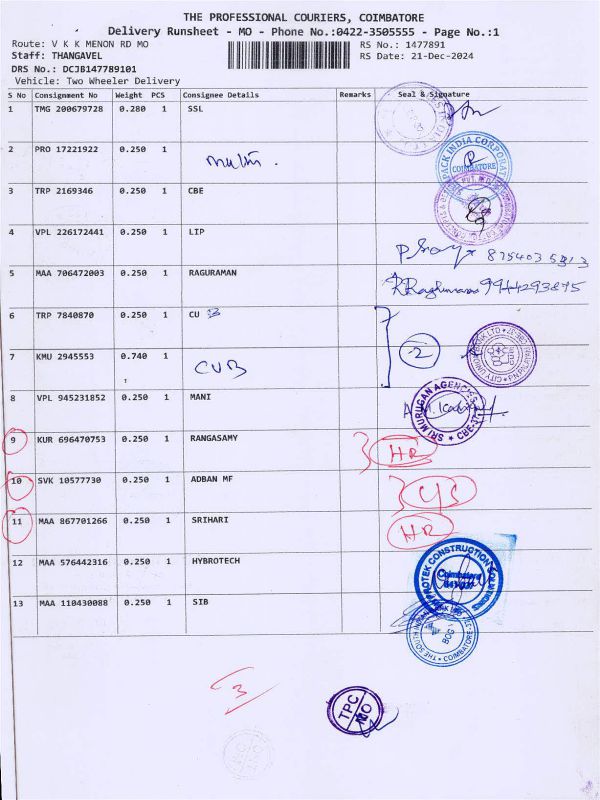 THE PROFESSIONAL COURIERS, COIMBATORE
Delivery Runsheet - MO - Phone No.:0422-3505555 - Page No.:1
Route: V K K MENON RD MO RS No.: 1477891
Staff: THANGAVEL RS Date: 21-Dec-2024
DRS No.: DCJB147789101
Vehicle: Two Wheeler Delivery
S No Consignment No Weight PCS Consignee Details Remarks Seal & Signature
1 TMG 200679728 0.280 1 SSL
2 PRO 17221922 0.250 1
PACK INDIA CORPORAT
COIMBATORE
3 TRP 2169346 0.250 1 CBE
4 VPL 226172441 0.250 1 LIP
5 MAA 706472003 0.250 1 RAGURAMAN
R Raghuraman 9944293875
6 TRP 7840870 0.250 1 CU B
2
CITY UNION BANK LTD
7 KMU 2945553 0.740 1 CUB
8 VPL 945231852 0.250 1 MANI
SRI MURUGAN AGENCIES
9 KUR 696470753 0.250 1 RANGASAMY
HR
10 SVK 10577730 0.250 1 ADBAN MF
11 MAA 867701266 0.250 1 SRIHARI
HR
12 MAA 576442316 0.250 1 HYBROTECH
PROTEK CONSTRUCTION
Coimbatore
13 MAA 110430088 0.250 1 SIB
THE SOUTH INDIAN BANK LTD
BOG
COIMBATORE
3
TPC
MO